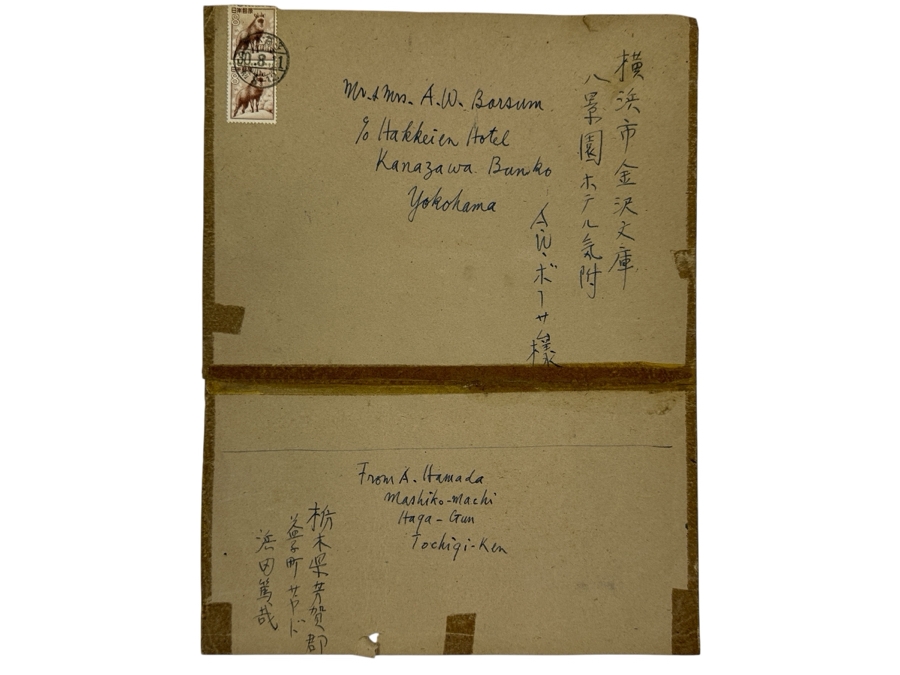 日本郵便
30.8.1
Mr. & Mrs. A. W. Borsum
c/o Hakkeien Hotel
Kanazawa Bunko
Yokohama
横浜市金沢文庫
八景園ホテル気附
ボーサム様
From A. Hamada
Mashiko-machi
Haga-Gun
Tochigi-Ken
栃木県芳賀郡
益子町サヤド
浜田篤哉